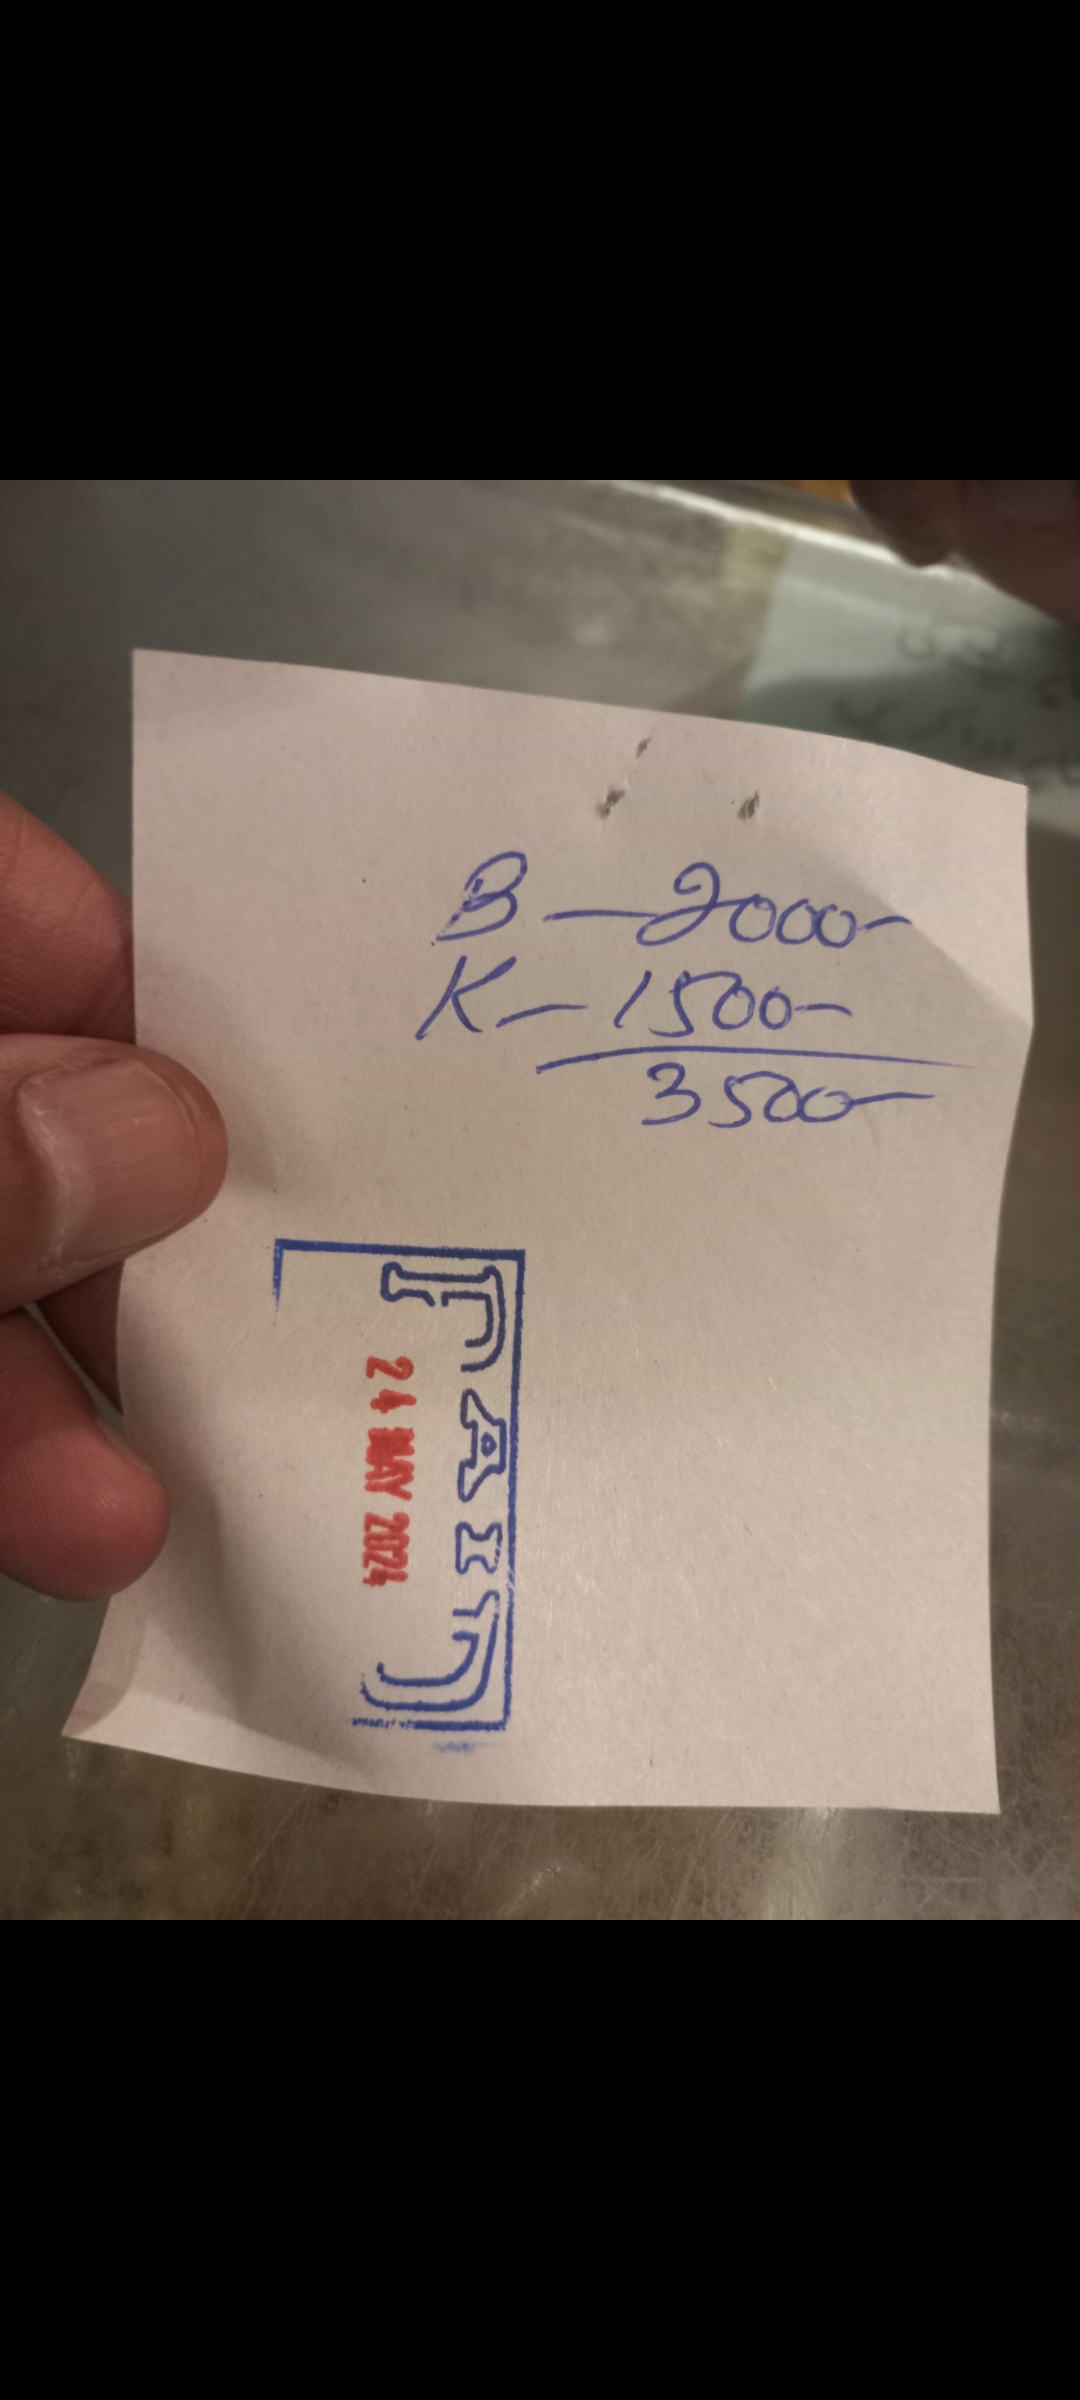 B — 2000-
K — 1500-
3500-
PAID
24 MAY 2024